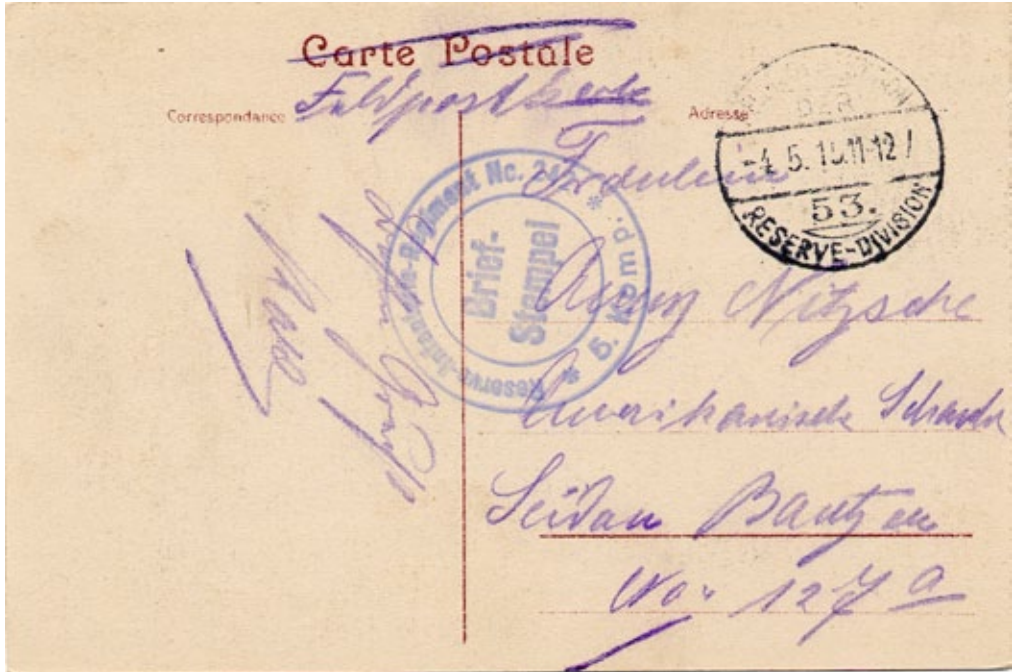 Carte Postale
Feldpostkarte
Correspondance
Adresse
DER
-4.5.15.11-12
53.
RESERVE-DIVISION
Reserve-Infanterie-Regiment No. 24
* 5. Komp. *
Brief-
Stempel
Fräulein
Nitzsche
Amerikanische
Seidau Bautzen
No. 127 a
Gruß